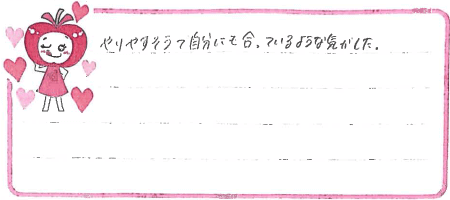 やりやすそうで自分にも合っているような気がした。